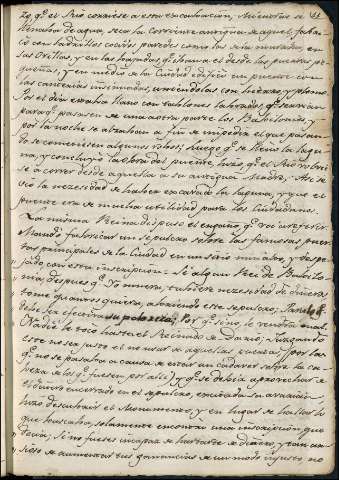 zo, q.e el Rio corriese a esta excabacion, Mientras se
llenaba de agua, seco la corriente antigua de aquel, fabri
có con ladrillos cocidos paredes como las de la muralla, en
las Orillas, y en las bajadas q.e tenia el desde las puertas pe
queñas, y en medio de la Ciudad edificó un puente con
las canterias insinuadas, uniendolas con hierro, y plomo
Por el dia estaba llano con tablones labrados q.e servian
para q.e pasasen de una a otra parte los Babilonios, y
por la noche se alzaban a fin de impedir el que pasan
do se cometiesen algunos robos; luego q.e se lleno la lagu
na, y concluyó la obra del puente hizo q.e el Rio volvie
se a correr desde aquella a su antigua Madre. Asi se
vio la necesidad de haber excavado la laguna, y que el
puente era de mucha utilidad para los Ciudadanos.
La misma Reina dispuso el engaño q.e voy a referir
Mandó fabricar un sepulcro sobre las famosas puer
tas principales de la Ciudad en un sitio mui alto, y despe
jado con esta inscripcion = Si algun Rei de Babilo
nia despues q.e Yo muera, tubiere necesidad de dinero,
tome quanto quiera, abriendo este sepulcro;
debe ser efectiva su pobreza; Por q.e si no le vendrá mal.
Nadie le tocó hasta el Reinado de Dario; Juzgando
este no ser justo el no usar de aquellas puertas, (por las
q.e no se pasaba a causa de estar un cadaver sobre la ca
veza de los q.e fuesen por alli) y q.e se debia aprovechar el
dinero encerrado en el sepulcro, excitada su avaricia,
hizo descubrir el Monumento, y en lugar de hallar lo
que buscaba, solamente encontró una inscripcion que
decia; Si no fueses incapaz de hartarte de dinero, y tan an
sioso de aumentar tus ganancias de un modo injusto, no